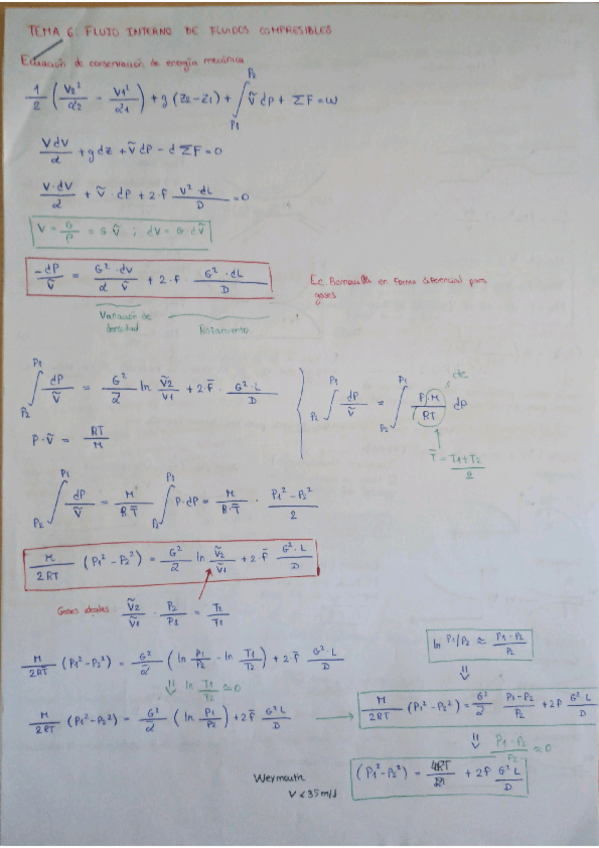 TEMA 6: FLUJO INTERNO DE FLUIDOS COMPRESIBLES
Ecuación de conservación de energía mecánica
1/2 (V2²/α2 - V1²/α1) + g (z2-z1) + ∫P1^P2 ṽ dp + ΣF = w
VdV/α + gdz + ṽdP - dΣF = 0
V·dV/α + ṽ·dP + 2·f · V²·dL/D = 0
V = G/ρ = G ṽ ; dV = G·dṽ
-dP/ṽ = G²·dv/α ṽ + 2·f · G²·dL/D
Ec. Bernouilli en forma diferencial para
gases
Variación de
densidad
Rozamiento
∫P2^P1 dP/ṽ = G²/α ln ṽ2/v1 + 2·f̄ · G²·L/D
∫P2^P1 dP/ṽ = ∫P2^P1 P·M/RT dP
cte
P·ṽ = RT/M
T̄ = T1+T2/2
∫P2^P1 dP/ṽ = M/R·T̄ ∫P2^P1 P·dP = M/R·T̄ · P1²-P2²/2
M/2RT (P1²-P2²) = G²/α ln ṽ2/ṽ1 + 2·f̄ G²·L/D
Gases ideales: ṽ2/ṽ1 · P2/P1 = T2/T1
ln P1/P2 ≈ P1-P2/P2
M/2RT (P1²-P2²) = G²/α (ln P1/P2 - ln T1/T2) + 2·f̄ G²·L/D
⇓ ln T1/T2 ≃ 0
⇓
M/2RT (P1²-P2²) = G²/α (ln P1/P2) + 2f̄ G²L/D
M/2RT (P1²-P2²) = G²/α P1-P2/P2 + 2f G²·L/D
⇓ P1-P2/P2 ≃ 0
(P1²-P2²) = 4RT + 2f G²·L/D
Weymouth
V < 35 m/s